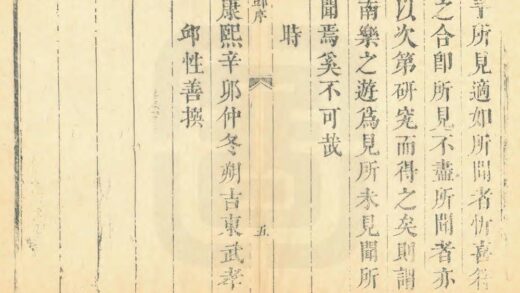 所見適如所聞者忻喜符
之合卽所見不盡所聞者亦
以次第研究而得之矣則謂
南樂之遊爲見所未見聞所
聞焉奚不可哉
時
邱序
五
康熙辛卯仲冬朔吉東武孝
邱性善撰